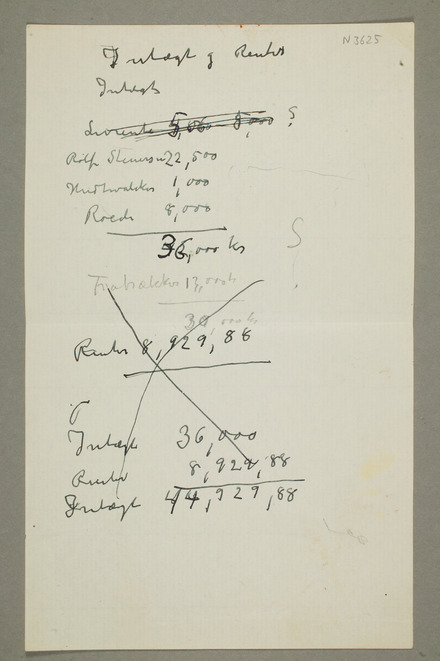 N 3625
Indtægt og Renter
Indtægt
5,000 5,000 ?
Rolf Stenersen 22,500
Hudtwalcker 1,000
Roede 8,000
36,000 kr
Fratrækkes 12,000 kr
30,000 kr
Renter 8,929,88
Indtægt 36,000
Renter 8,929,88
Indtægt 44,929,88